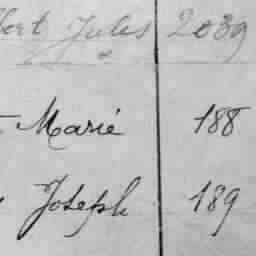 Jules 2089
Marie 188
Joseph 189